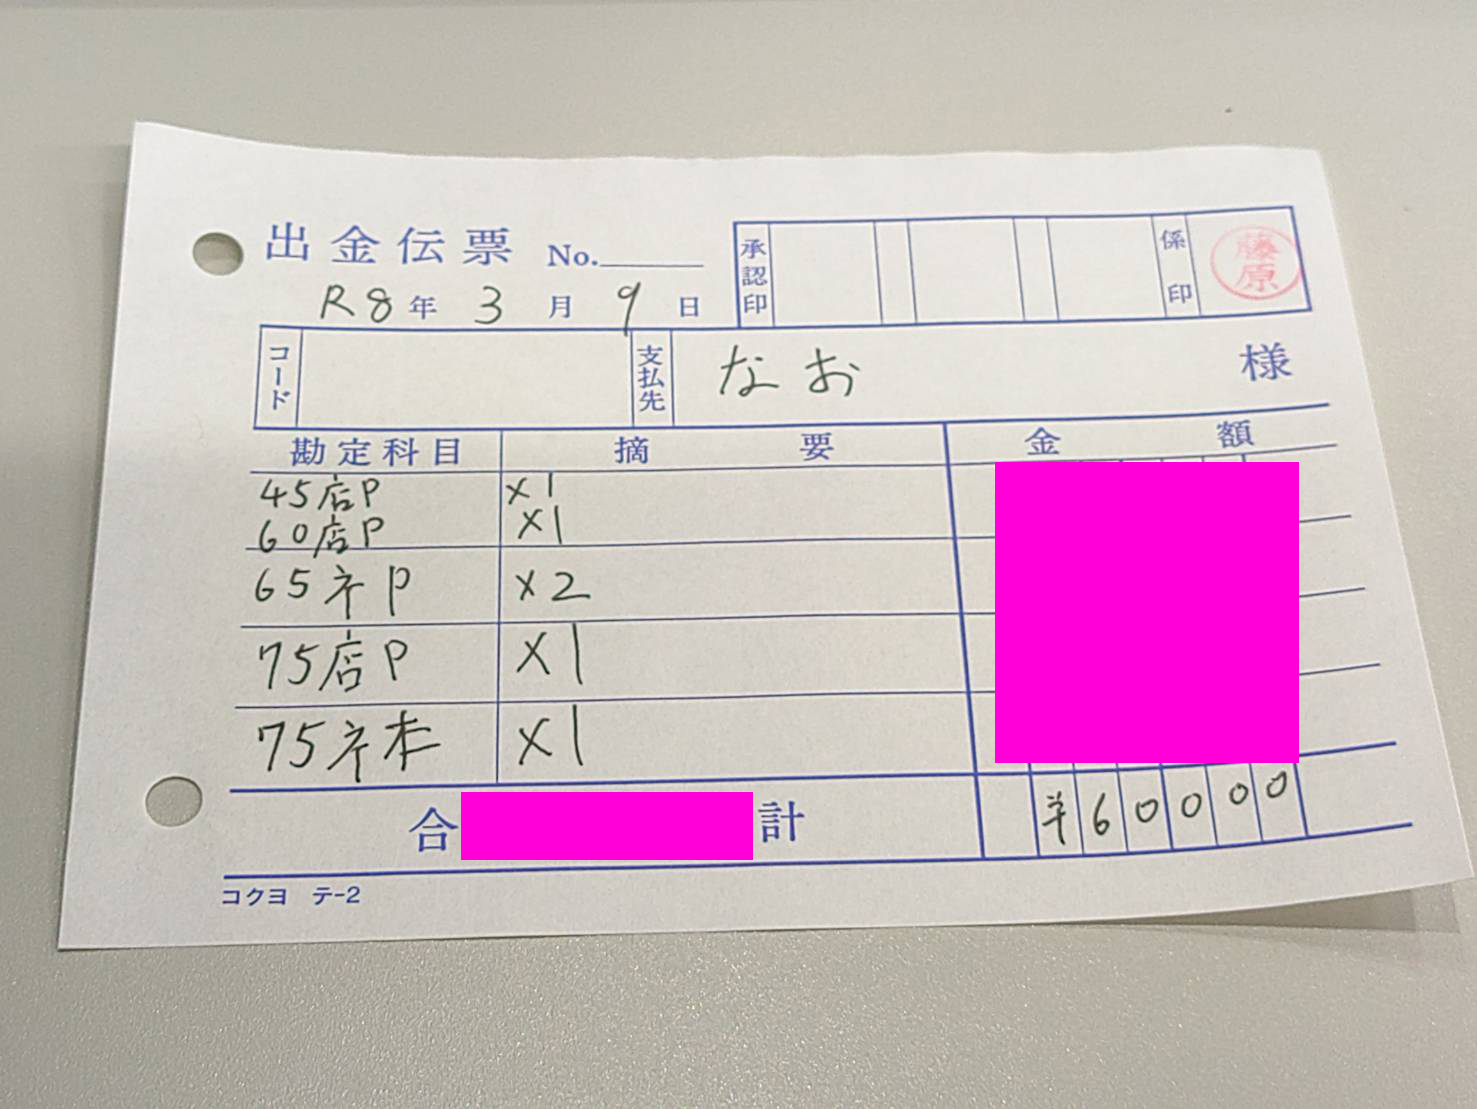 出金伝票 No.
R8年 3月 9日
承認印
係印
藤原
コード
支払先 なお 様
勘定科目 摘要 金額
45店P ×1
60店P ×1
65ネP ×2
75店P ×1
75ネ本 ×1
合計 ¥60000
コクヨ テ-2